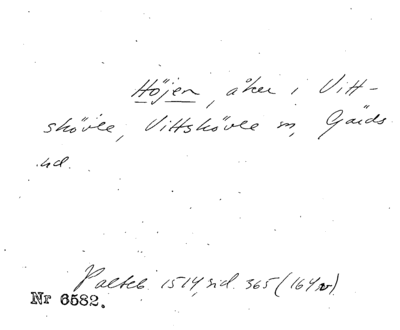 Höjen, åker i Vitt-
skövle, Vittskövle sn, Gärds
hd.
Palteb 1514, sid. 365 (164 v).
Nr 6582.